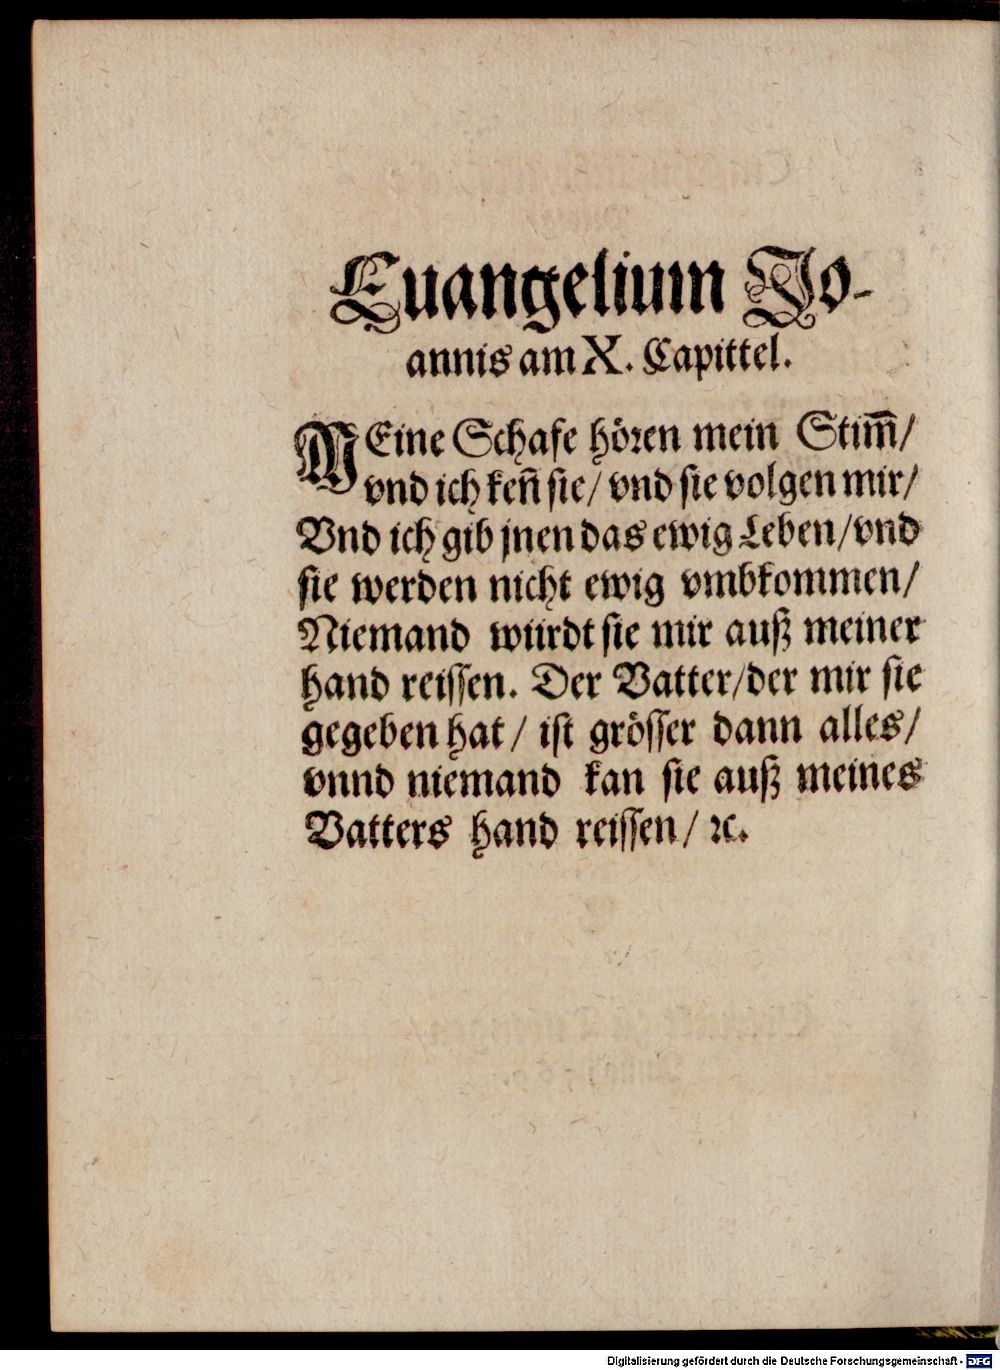 Euangelium Jo-
annis am X. Capittel.
MEine Schafe hören mein Stim̃/
vnd ich keñ sie/ vnd sie volgen mir/
Vnd ich gib jnen das ewig Leben/ vnd
sie werden nicht ewig vmbkommen/
Niemand würdt sie mir auß meiner
hand reissen. Der Vatter/ der mir sie
gegeben hat/ ist grösser dann alles/
vnnd niemand kan sie auß meines
Vatters hand reissen/ ꝛc.
Digitalisierung gefördert durch die Deutsche Forschungsgemeinschaft - DFG